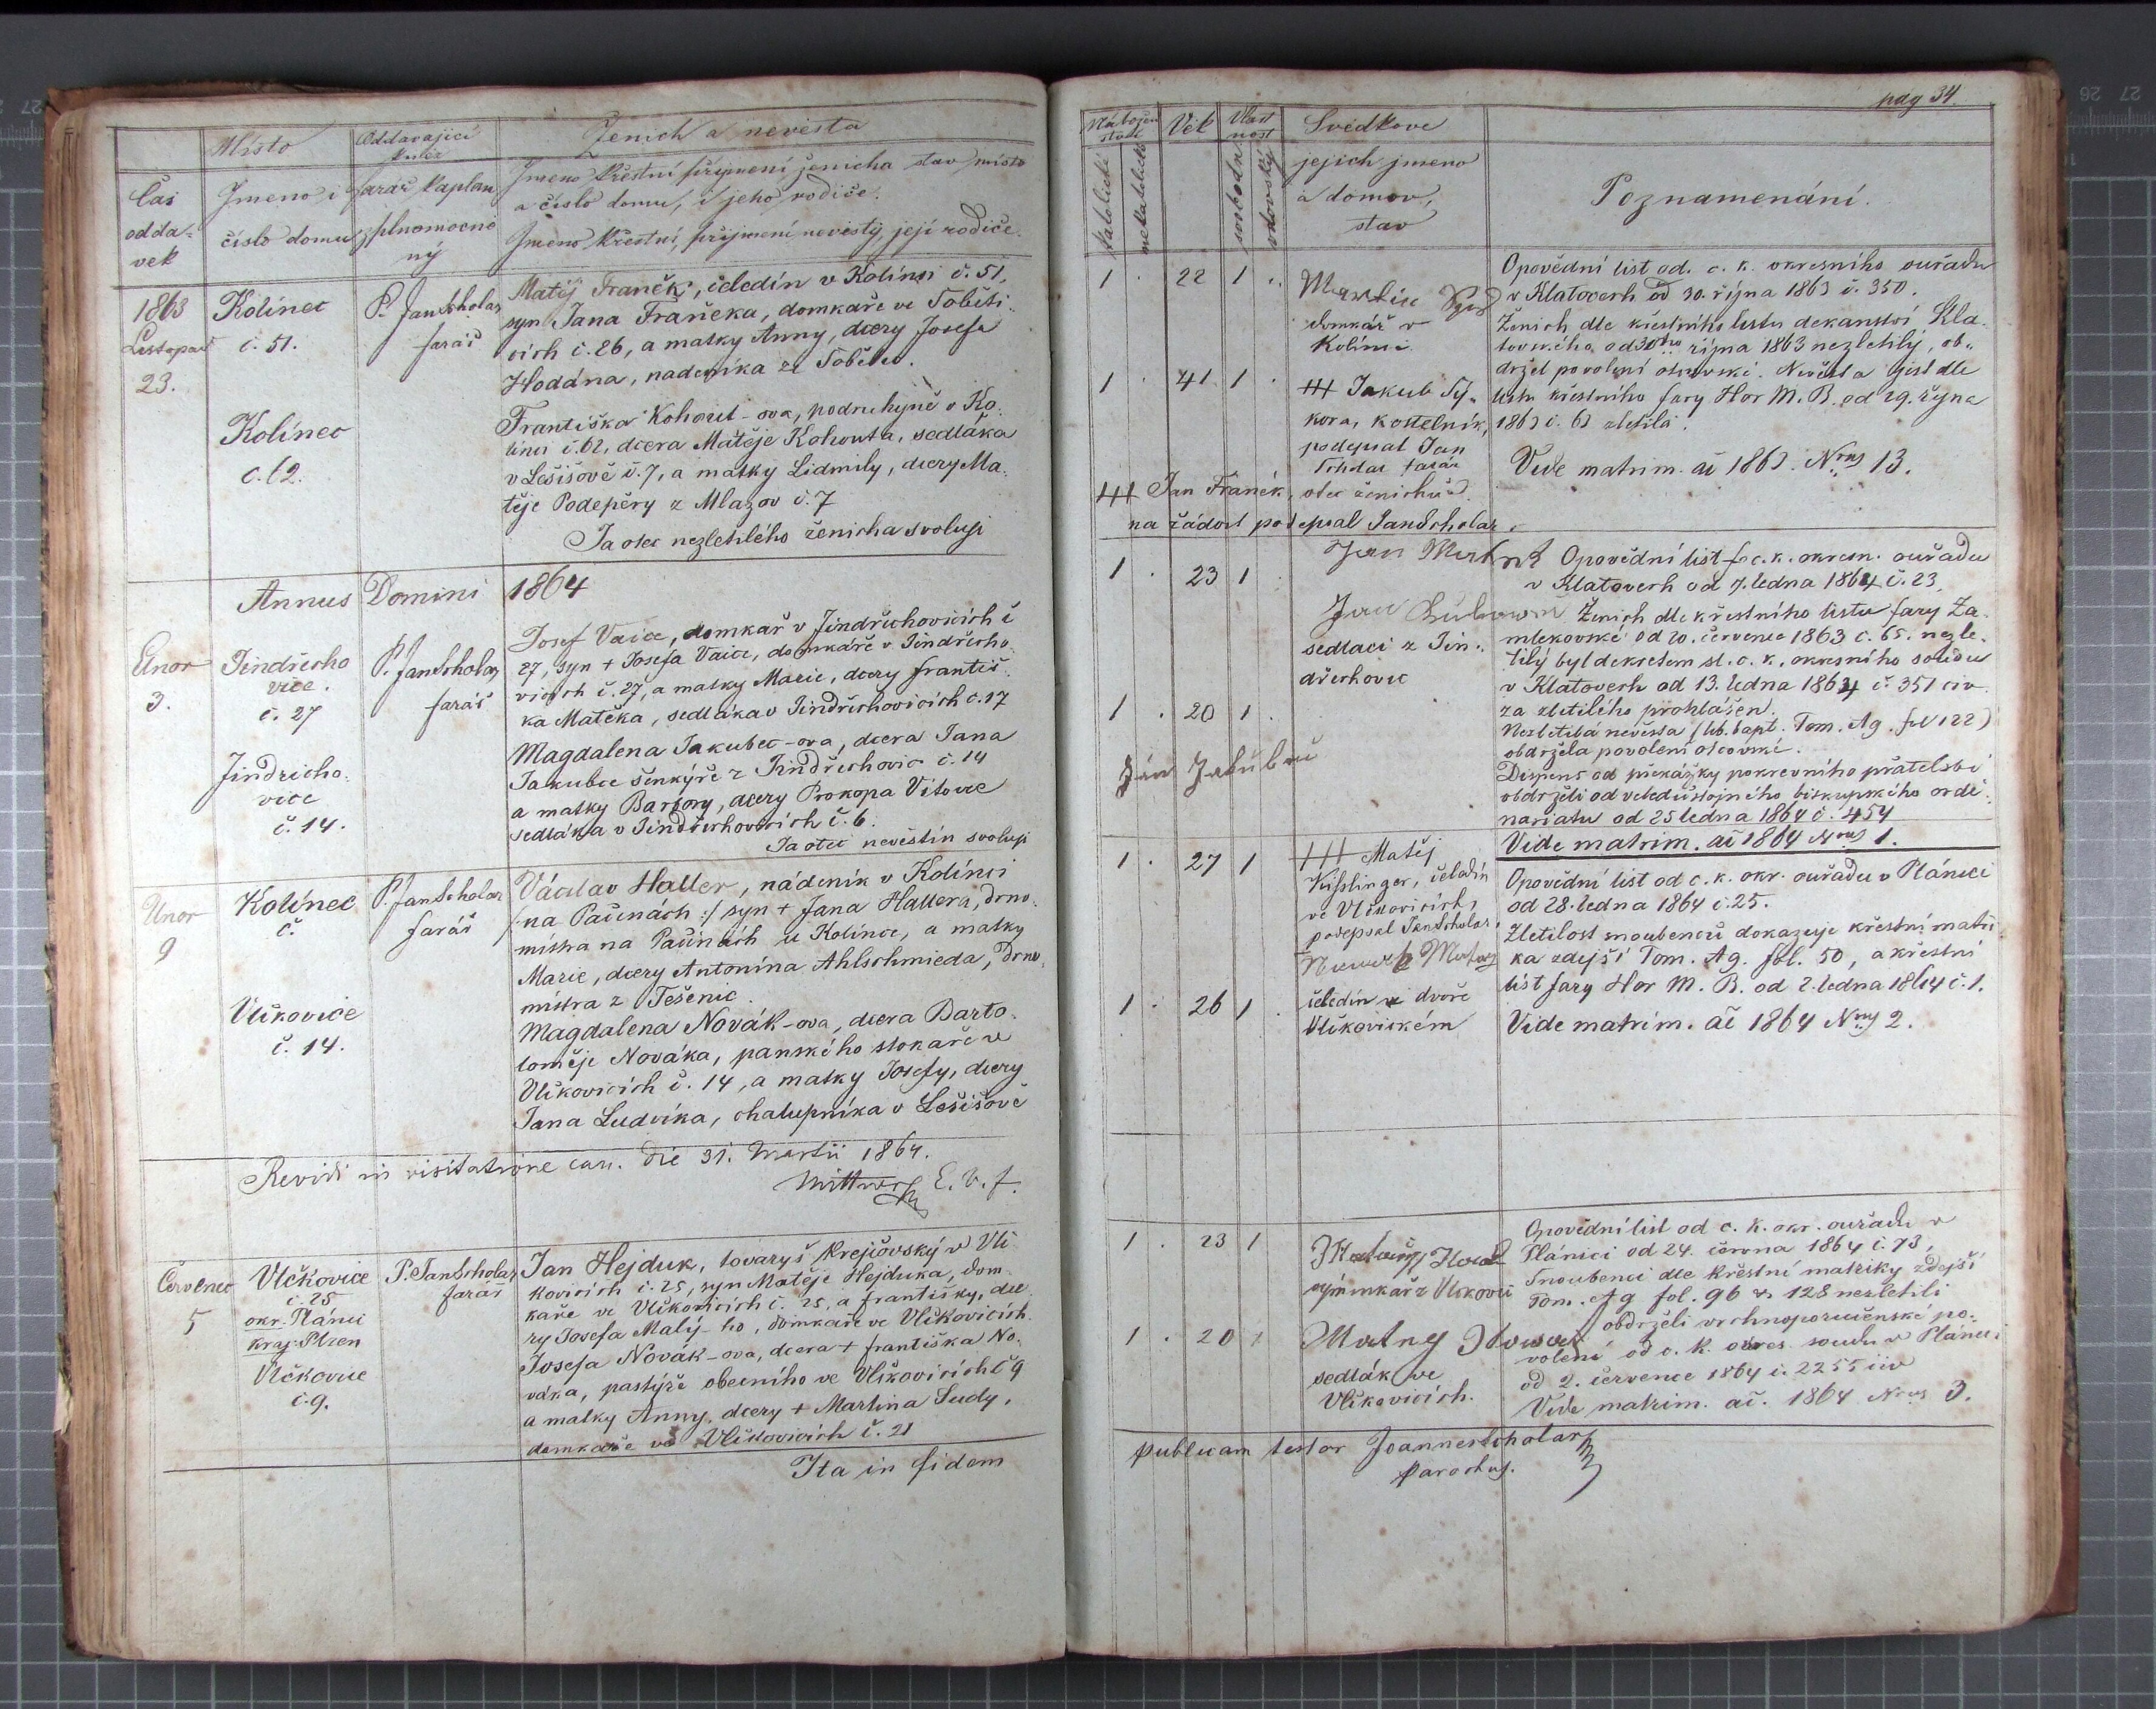 pag 34
Místo
Oddavající
kněz
Ženich a nevěsta
Čas
odda-
vek
Jmeno i
číslo domu
farář kaplan
zplnomocně
ný
Jmeno křestní příjmení ženicha stav místo
a číslo domu, i jeho rodiče.
Jmeno křestní, příjmení nevěsty, její rodiče.
1863
Listopad
23.
Kolinec
č. 51.
Kolínec
č. 62.
P. Jan Scholar
farář
Matěj Franěk, čeledín v Kolínci č. 51,
syn Jana Franěka, domkaře ve Toběti
cích č. 26, a matky Anny, dcery Josefa
Hodána, nadeníka z
Františka Kohout-ova, podruhyně v Ko-
línci č. 62, dcera Matěje Kohouta, sedláka
v Lešišově č. 7, a matky Lidmily, dcery Ma-
těje Podepěry z Mlazov č. 7
Ja otec nezletilého ženicha svoluji
Annus Domini 1864
Unor
3.
Jindřicho
vice.
č. 27
Jindricho-
vice
č. 14.
P. Jan Scholar
farář
Josef Vaice, domkař v Jindřichovicích č
27, syn + Josefa Vaice, domkáře v Jindřicho
vicích č. 27, a matky Marie, dcery Františ-
ka Matěka, sedláka v Jindřichovicích č. 17
Magdalena Jakubec-ova, dcera Jana
Jakubce šenkýře z Jindřichovic č. 14
a matky Barbory, dcery Prokopa Vítovce
sedláka v Jindřichovicích č. 6.
Ja otec nevěstin svoluji
Unor
9
Kolínec
č.
Vlčkovice
č. 14.
P. Jan Scholar
farář
Václav Haller, nádeník v Kolínci
/: na Pačinách :/ syn + Jana Hallera, drno-
mistra na Pačinách u Kolince, a matky
Marie, dcery Antonína Ahlschmieda, drno-
mistra z Těšenic.
Magdalena Novák-ova, dcera Barto-
loměje Nováka, panského slokaře ve
Vlčkovicích č. 14, a matky Josefy, dcery
Jana Ludvíka, chalupníka v Lešišově
Revidi in visitatione can. die 31. Martii 1864.
E. V. f.
Červenec
5
Vlčkovice
č. 25
okr. Plánici
kraj: Plzen
Vlčkovice
č. 9.
P. Jan Scholar
farář
Jan Hejduk, tovaryš krejčovský v Vlč
kovicích č. 25, syn Matěje Hejduka, dom-
kaře ve Vlčkovicích č. 25, a Františky, dce
ry Josefa Malý-ho, domkaře ve Vlčkovicích.
Josefa Novák-ova, dcera + Františka No-
váka, pastýře obecního ve Vlčkovicích č 9
a matky Anny, dcery + Martina Sudy,
domkaře ve Vlčkovicích č. 21
Ita in fidem
Nábožen
ství
Věk
Vlast
nost
Svědkove
katolické
nekatolické
svobodní
vdovský
jejich jmeno
a domov,
stav
Poznamenání.
1 · 22 1 ·
domkář v
Kolinci.
1 · 41 1 ·
+++ Jakub Sý-
kora, kostelník,
podepsal Jan
Scholar farář
+++ Jan Franěk, otec ženichův
na žádost podepsal Jan Scholar.
Opovědní list od. c. k. okresního ouřadu
v Klatovech od 30. října 1863 č. 350.
Ženich dle křestního listu dekanství Kla-
tovského od 30ho října 1863 nezletilý, ob-
držel povolení otcovské. Nevěsta jest dle
listu křestního fary Hor M. B. od 29. října
1863 č. 63 zletilá.
Vide matrim. ai 1863. Nrus 13.
1 · 23 1 ·
Jan
Jan
sedlaci z Jin-
dřichovic
1 · 20 1 ·
Ján Jakubec
Opovědní list c. k. okresn. ouřadu
v Klatovech od 7. ledna 1864 č. 23.
Ženich dle křestního listu fary Za-
mlekovské od 20. července 1863 č. 65. nezle-
tilý byl dekretem sl. c. k. okresního soudu
v Klatovech od 13. ledna 1864 č. 351 civ
za zletilého prohlášen.
Nezletilá nevěsta (lib. bapt. Tom. Ag. fol 122)
obdržela povolení otcovské.
Dispens od překážky pokrevního přatelství
obdrželi od veledůstojného biskupského ordi-
nariatu od 25 ledna 1864 č. 454
Vide matrim. ai 1864 Nrus 1.
1 · 27 1
+++ Matěj
Kisslinger, čeledín
ve Vlčkovicích,
podepsal Jan Scholar
1 · 26 1 ·
čeledín v dvoře
Vlčkovickém
Opovědní list od c. k. okr. ouřadu v Plánici
od 28. ledna 1864 č. 25.
Zletilost snoubenců dokazuje křestní matri
ka zdejší Tom. Ag. fol. 50, a křestní
list fary Hor M. B. od 2. ledna 1864 č. 1.
Vide matrim. ai 1864 Nrus 2.
1 · 23 1
z Vlčkovic
1 · 20 1
sedlák ve
Vlčkovicích.
Opovědní list od c. k. okr. ouřadu v
Plánici od 24. června 1864 č. 73,
Snoubenci dle křestní matriky zdejší
Tom. Ag fol. 96 & 128 nezletili
obdrželi vrchnoporučenské po-
volení od c. k. okres. soudu v Plánici
od 2. července 1864 č. 2255 civ
Vide matrim. ai. 1864 Nrus 3.
publicam testor Joannes Scholar
parochus.